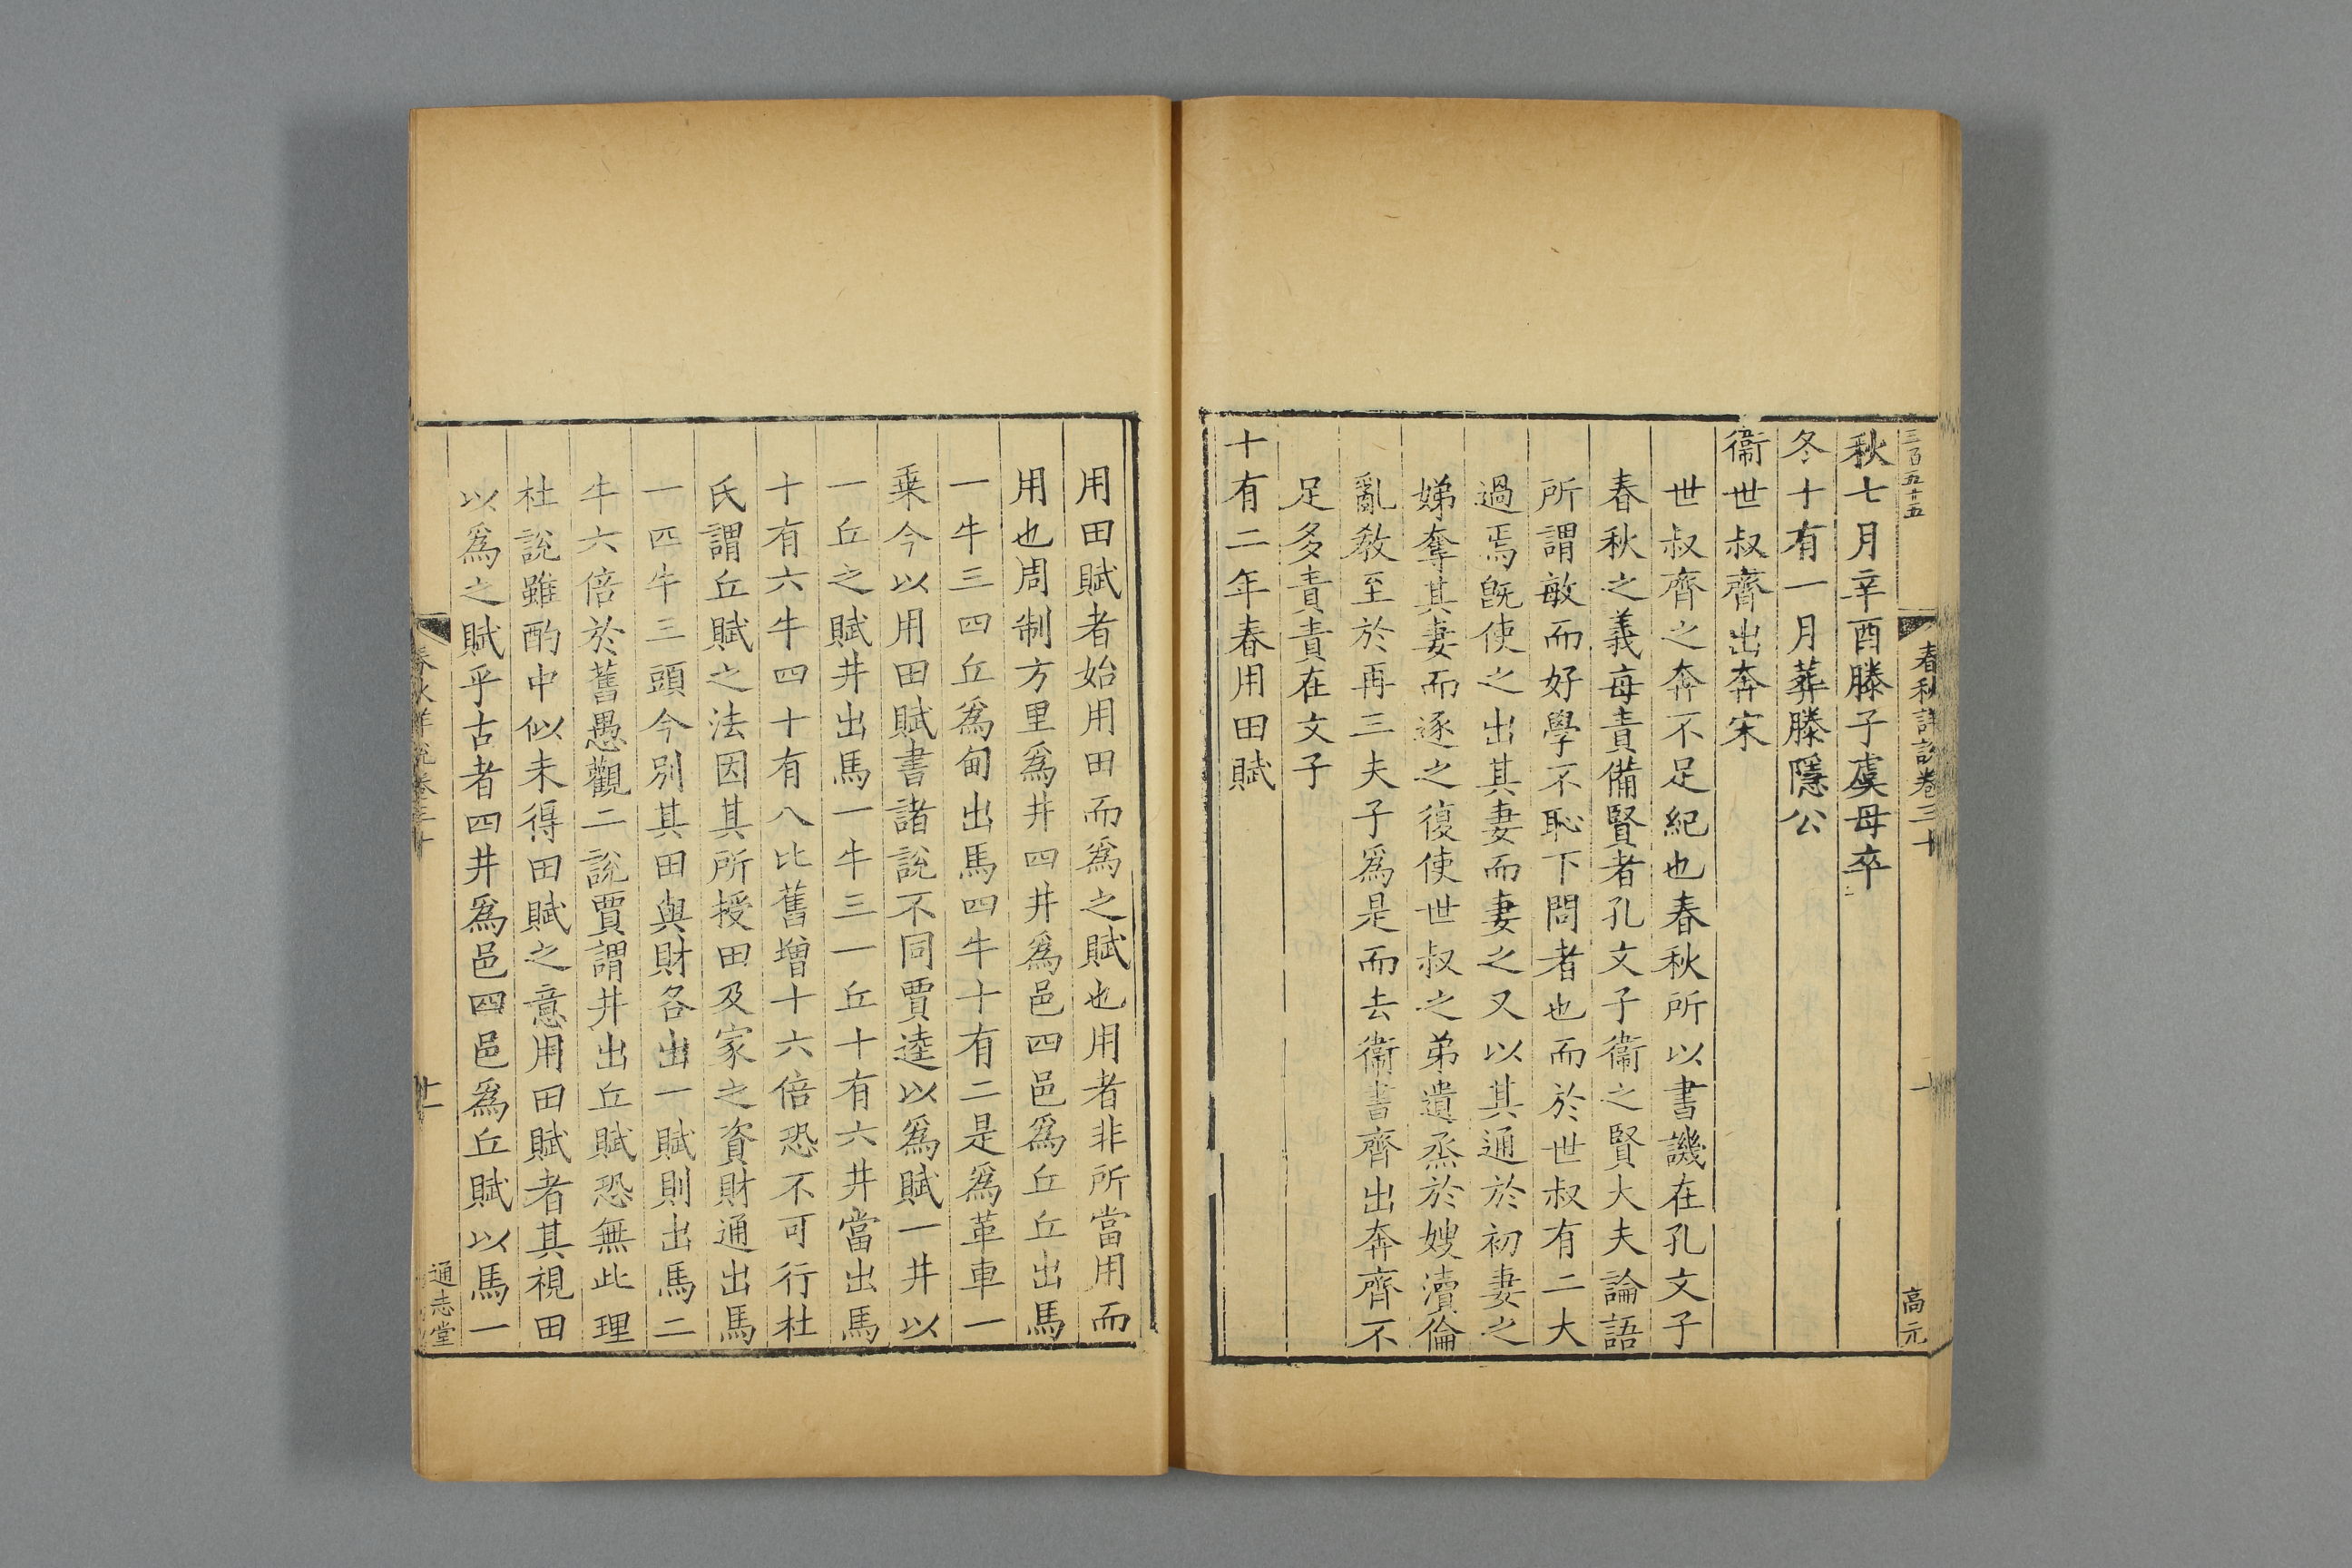 三百五十五
春秋詳說卷三十
十
高元
秋七月辛酉滕子虞母卒
冬十有一月葬滕隱公
衞世叔齊出奔宋
世叔齊之奔不足紀也春秋所以書譏在孔文子
春秋之義每責備賢者孔文子衞之賢大夫論語
所謂敏而好學不恥下問者也而於世叔有二大
過焉旣使之出其妻而妻之又以其通於初妻之
娣奪其妻而逐之復使世叔之弟遺烝於嫂瀆倫
亂敎至於再三夫子爲是而去衞書齊出奔齊不
足多責責在文子
十有二年春用田賦
用田賦者始用田而爲之賦也用者非所當用而
用也周制方里爲井四井爲邑四邑爲丘丘出馬
一牛三四丘爲甸出馬四牛十有二是爲革車一
乗今以用田賦書諸說不同賈逵以爲賦一井以
一丘之賦井出馬一牛三一丘十有六井當出馬
十有六牛四十有八比舊增十六倍恐不可行杜
氏謂丘賦之法因其所授田及家之資財通出馬
一匹牛三頭今別其田與財各出一賦則出馬二
牛六倍於舊愚觀二說賈謂井出丘賦恐無此理
杜說雖酌中似未得田賦之意用田賦者其視田
以爲之賦乎古者四井爲邑四邑爲丘賦以馬一
春秋詳說卷三十
十一
通志堂